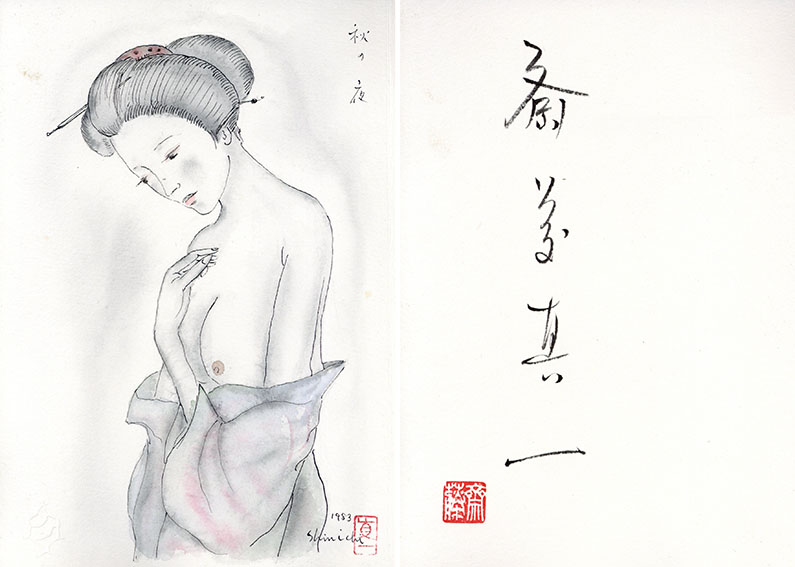 秋の夜
1983
Shinichi
真一
斎藤真一
齋藤